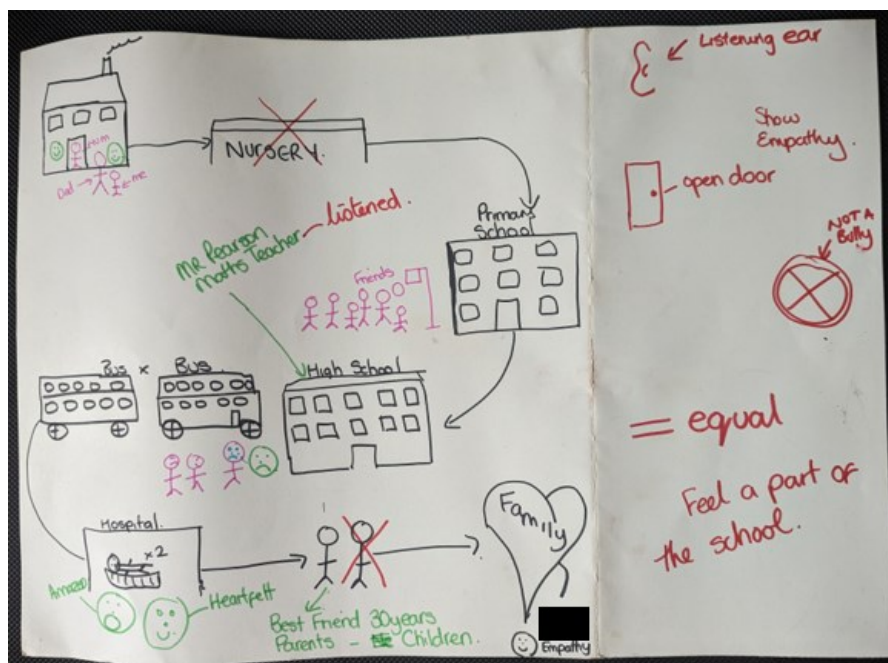 Mum
Dad
me
NURSERY.
Mr Pearson
Maths Teacher
listened.
Primary
School
Friends
High School
Bus x Bus
Hospital.
x2
Amazed
Heartfelt
Best Friend 30years
Parents - Children.
Family
Empathy
Listening ear
Show
Empathy.
open door
NOT A
Bully
= equal
Feel a part of
the school.